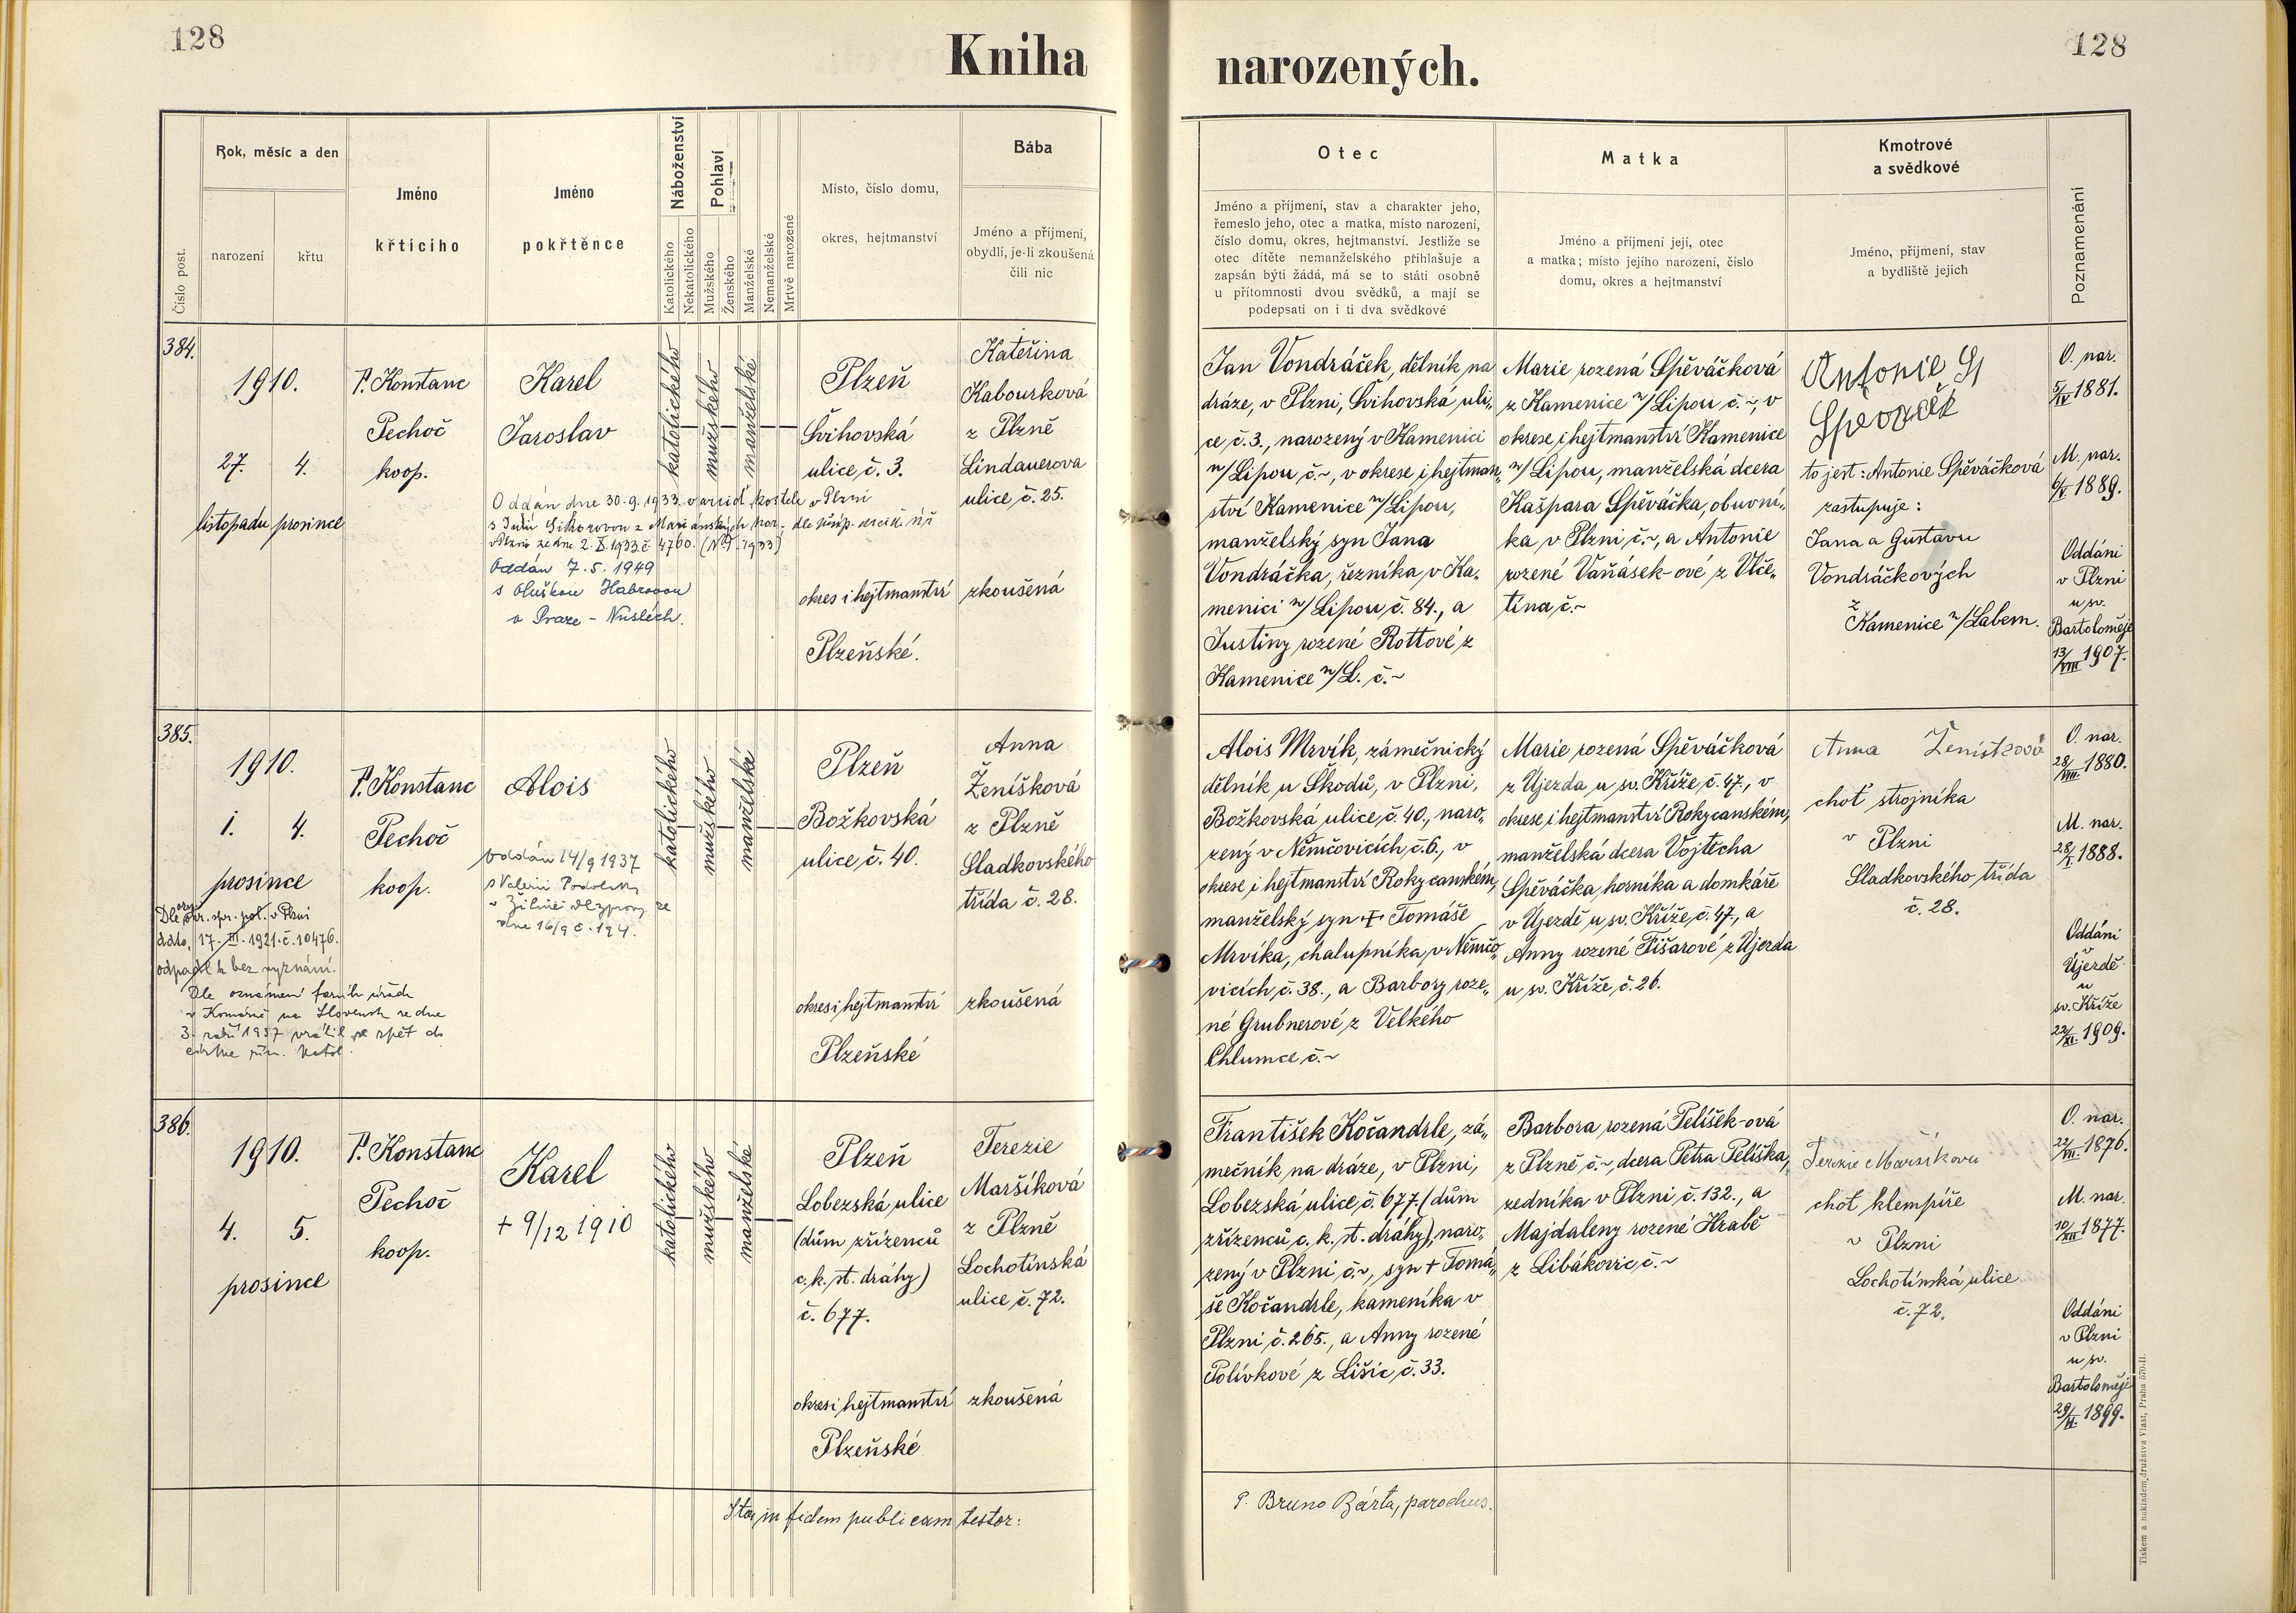 128
Kniha
narozených.
128
Číslo post.
Rok, měsíc a den
narození
křtu
Jméno
křticího
Jméno
pokřtěnce
Náboženství
Katolického
Nekatolického
Pohlaví
Mužského
Ženského
Manželské
Nemanželské
Mrtvě narozené
Místo, číslo domu,
okres, hejtmanství
Bába
Jméno a příjmení,
obydlí, je-li zkoušená
čili nic
Otec
Jméno a příjmení, stav a charakter jeho,
řemeslo jeho, otec a matka, místo narození,
číslo domu, okres, hejtmanství. Jestliže se
otec dítěte nemanželského přihlašuje a
zapsán býti žádá, má se to státi osobně
u přítomnosti dvou svědků, a mají se
podepsati on i ti dva svědkové
Matka
Jméno a příjmení její, otec
a matka; místo jejího narození, číslo
domu, okres a hejtmanství
Kmotrové
a svědkové
Jméno, příjmení, stav
a bydliště jejich
Poznamenání
384.
1910.
27. 4.
listopadu prosince
P. Konstanc
Pechoč
koop.
Karel
Jaroslav
Oddán dne 30.9.1933 v arcid. kostele v Plzni
s Julií Sikorovou z Mariánských Hor
v Plzni ze dne 2.X.1933 č. 4760.
Oddán 7.5.1949
s Oluškou Habrovou
v Praze - Nuslech.
katolického
mužského
manželské
Plzeň
Švihovská
ulice č. 3.
okres i hejtmanství
Plzeňské.
Kateřina
Kabourková
z Plzně
Lindauerova
ulice č. 25.
zkoušená
Jan Vondráček, dělník na
dráze, v Plzni, Švihovská uli„
ce č. 3., narozený v Kamenici
n/Lipou č. ~, v okrese i hejtman„
ství Kamenice n/Lipou,
manželský syn Jana
Vondráčka, řezníka v Ka„
menici n/Lipou č. 84., a
Justiny rozené Rottové z
Kamenice n/L. č. ~
Marie rozená Spěváčková
z Kamenice n/Lipou č. ~, v
okrese i hejtmanství Kamenice
n/Lipou, manželská dcera
Kašpara Spěváčka, obuvní„
ka v Plzni č. ~, a Antonie
rozené Vaňásek-ové z Vče„
tína č. ~
Antonie
to jest: Antonie Spěváčková
zastupuje:
Jana a Gustavu
Vondráčkových
z
Kamenice n/Labem.
O. nar.
5/IV 1881.
M. nar.
6/V. 1889.
Oddáni
v Plzni
u sv.
Bartoloměje
13/VIII 1907.
385.
1910.
1. 4.
prosince
Dle opr. spr. pol. v Plzni
ddto. 17. III. 1921. č. 10476.
odpadl k bez vyznání.
Dle oznámení farního úřadu
v Komárně na Slovensku ze dne
3. září 1937 vrátil se zpět do
církve řím. katol.
P. Konstanc
Pechoč
koop.
Alois
oddán 14/9 1937
s Valerií
v Žilině dle zprávy ze
dne 16/9 č. 194.
katolického
mužského
manželské
Plzeň
Božkovská
ulice č. 40.
okres i hejtmanství
Plzeňské
Anna
Ženíšková
z Plzně
Sladkovského
třída č. 28.
zkoušená
Alois Mrvík, zámečnický
dělník u Škodů, v Plzni,
Božkovská ulice č. 40., naro„
zený v Němčovicích č. 6., v
okrese i hejtmanství Rokycanském,
manželský syn + Tomáše
Mrvíka, chalupníka v Němčo„
vicích č. 38., a Barbory roze„
né Grubnerové z Velkého
Chlumce č. ~
Marie rozená Spěváčková
z Újezda u sv. Kříže č. 47., v
okrese i hejtmanství Rokycanském,
manželská dcera Vojtěcha
Spěváčka, horníka a domkáře
v Újezdě u sv. Kříže č. 47., a
Anny rozené Fišarové z Újezda
u sv. Kříže č. 26.
Anna Ženíšková
choť strojníka
v Plzni
Sladkovského třída
č. 28.
O. nar.
28/VIII. 1880.
M. nar.
28/I. 1888.
Oddáni
Újezdě
u
sv. Kříže
22/XI. 1909.
386.
1910.
4. 5.
prosince
P. Konstanc
Pechoč
koop.
Karel
+ 9/12 1910
katolického
mužského
manželské
Plzeň
Lobezská ulice
(dům zřízenců
c. k. st. dráhy)
č. 677.
okres i hejtmanství
Plzeňské
Terezie
Maršíková
z Plzně
Lochotínská
ulice č. 72.
zkoušená
František Kočandrle, zá„
mečník na dráze, v Plzni,
Lobezská ulice č. 677. (dům
zřízenců c. k. st. dráhy), naro„
zený v Plzni č. ~, syn + Tomá„
še Kočandrle, kameníka v
Plzni č. 265., a Anny rozené
Polívkové z Lišic č. 33.
Barbora rozená Pelíšek-ová
z Plzně č. ~, dcera Petra Pelíška,
zedníka v Plzni č. 132., a
Majdaleny rozené Hrabě
z Libákovic č. ~
Terezie Maršíkova
choť klempíře
v Plzni
Lochotínská ulice
č. 72.
O. nar.
22/VII. 1876.
M. nar.
10/XII 1877.
Oddáni
v Plzni
u sv.
Bartoloměje
1899.
Ita in fidem publicam testor:
P. Bruno Bárta, parochus.
Tiskem a nákladem družstva Vlast, Praha 570-II.